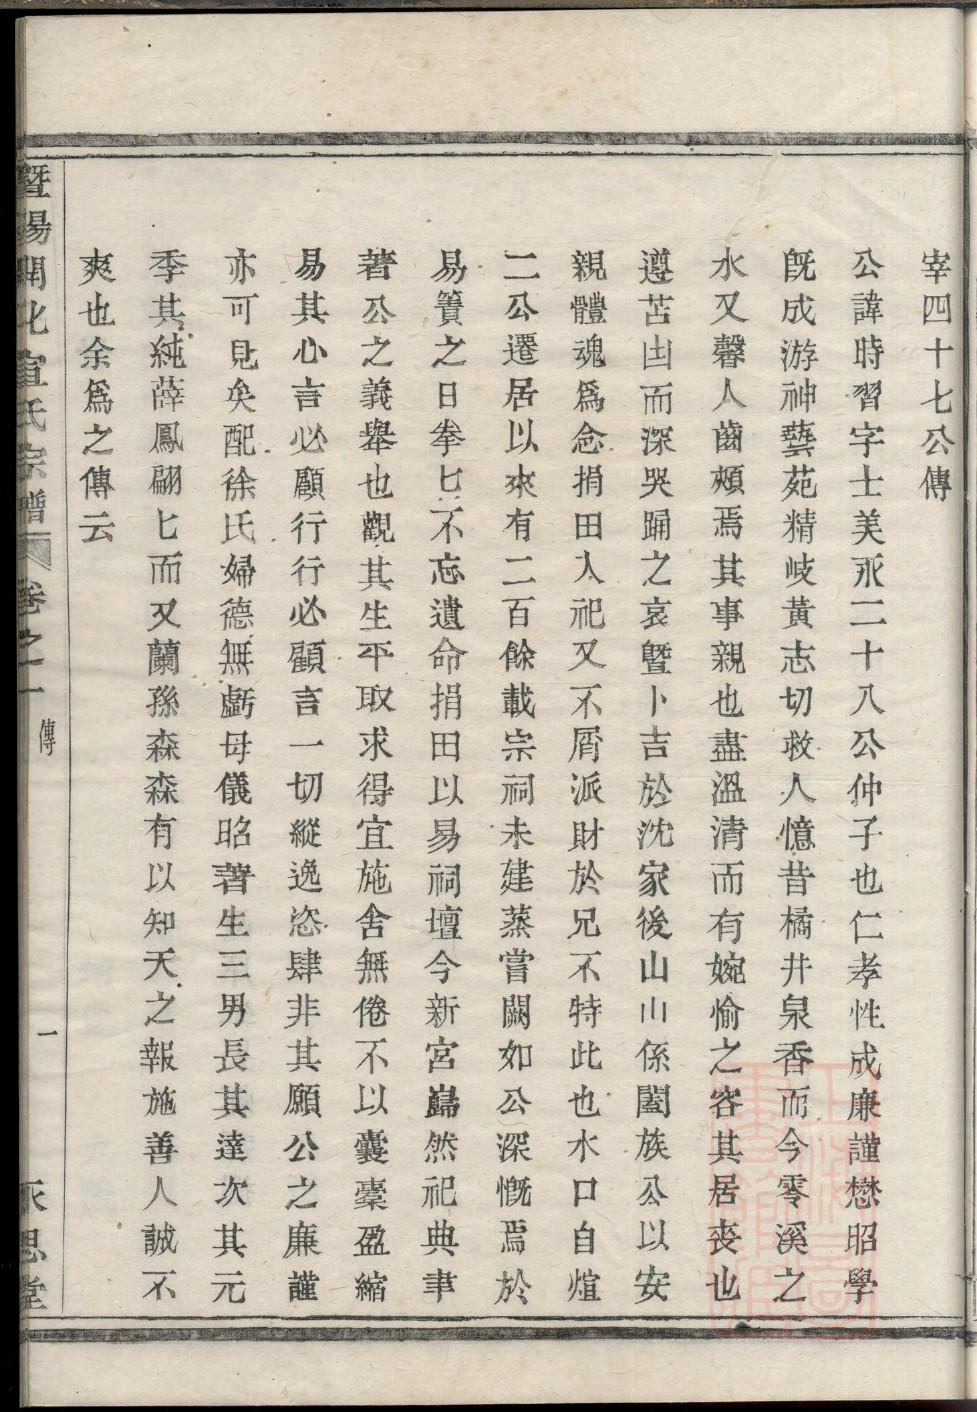 宰四十七公傳
公諱時習字士美永二十八公仲子也仁孝性成廉謹懋昭學
既成游神藝苑精岐黃志切救人憶昔橘井泉香而今零溪之
水又馨人齒頰焉其事親也盡溫清而有婉愉之容其居喪也
遵苫凷而深哭踊之哀曁卜吉於沈家後山山係闔族公以安
親體魂爲念捐田入祀又不屑派財於兄不特此也水口自煊
二公遷居以來有二百餘載宗祠未建蒸嘗闕如公深慨焉於
易簀之日拳匕不忘遺命捐田以易祠壇今新宮巋然祀典聿
著公之義舉也觀其生平取求得宜施舍無倦不以囊橐盈縮
易其心言必顧行行必顧言一切縱逸恣肆非其願公之廉謹
亦可見矣配徐氏婦德無虧母儀昭著生三男長其達次其元
季其純薛鳳翩匕而又蘭孫森森有以知天之報施善人誠不
爽也余爲之傳云
暨陽開化宣氏宗譜 卷之一 傳 一 永思堂